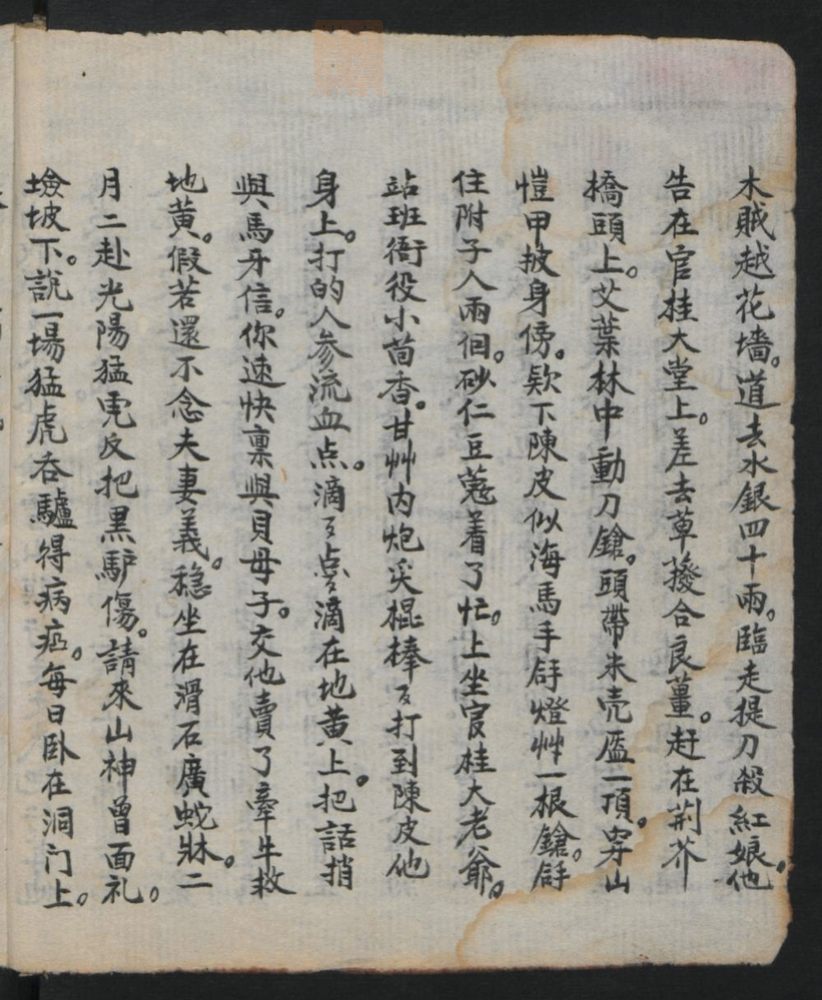 木賊越花墻。道去水銀四十兩。臨走提刀殺紅娘。他
告在官桂大堂上。差去草撥合良薑。赶在荆芥
橋頭上。艾葉林中動刀鎗。頭帶米壳盔一頂。穿山
愷甲披身傍。欵下陳皮似海馬手舒燈艸一根鎗。舒
住附子人兩個。砂仁豆蔻着了忙。上坐官桂大老爺。
站班衙役小茴香。甘艸内炮尖棍棒々打到陳皮他
身上。打的人参流血点。滴々点滴在地黄上。把話捎
與馬牙信。你速快禀與貝母子。交他賣了牽牛救
地黄。假若還不念夫妻義。穏坐在滑石廣蛇牀。二
月二赴光陽猛虎反把黒馿傷。請來山神曾面礼。
墝坡下。說一場猛虎吞驢得病症。每日卧在洞门上。